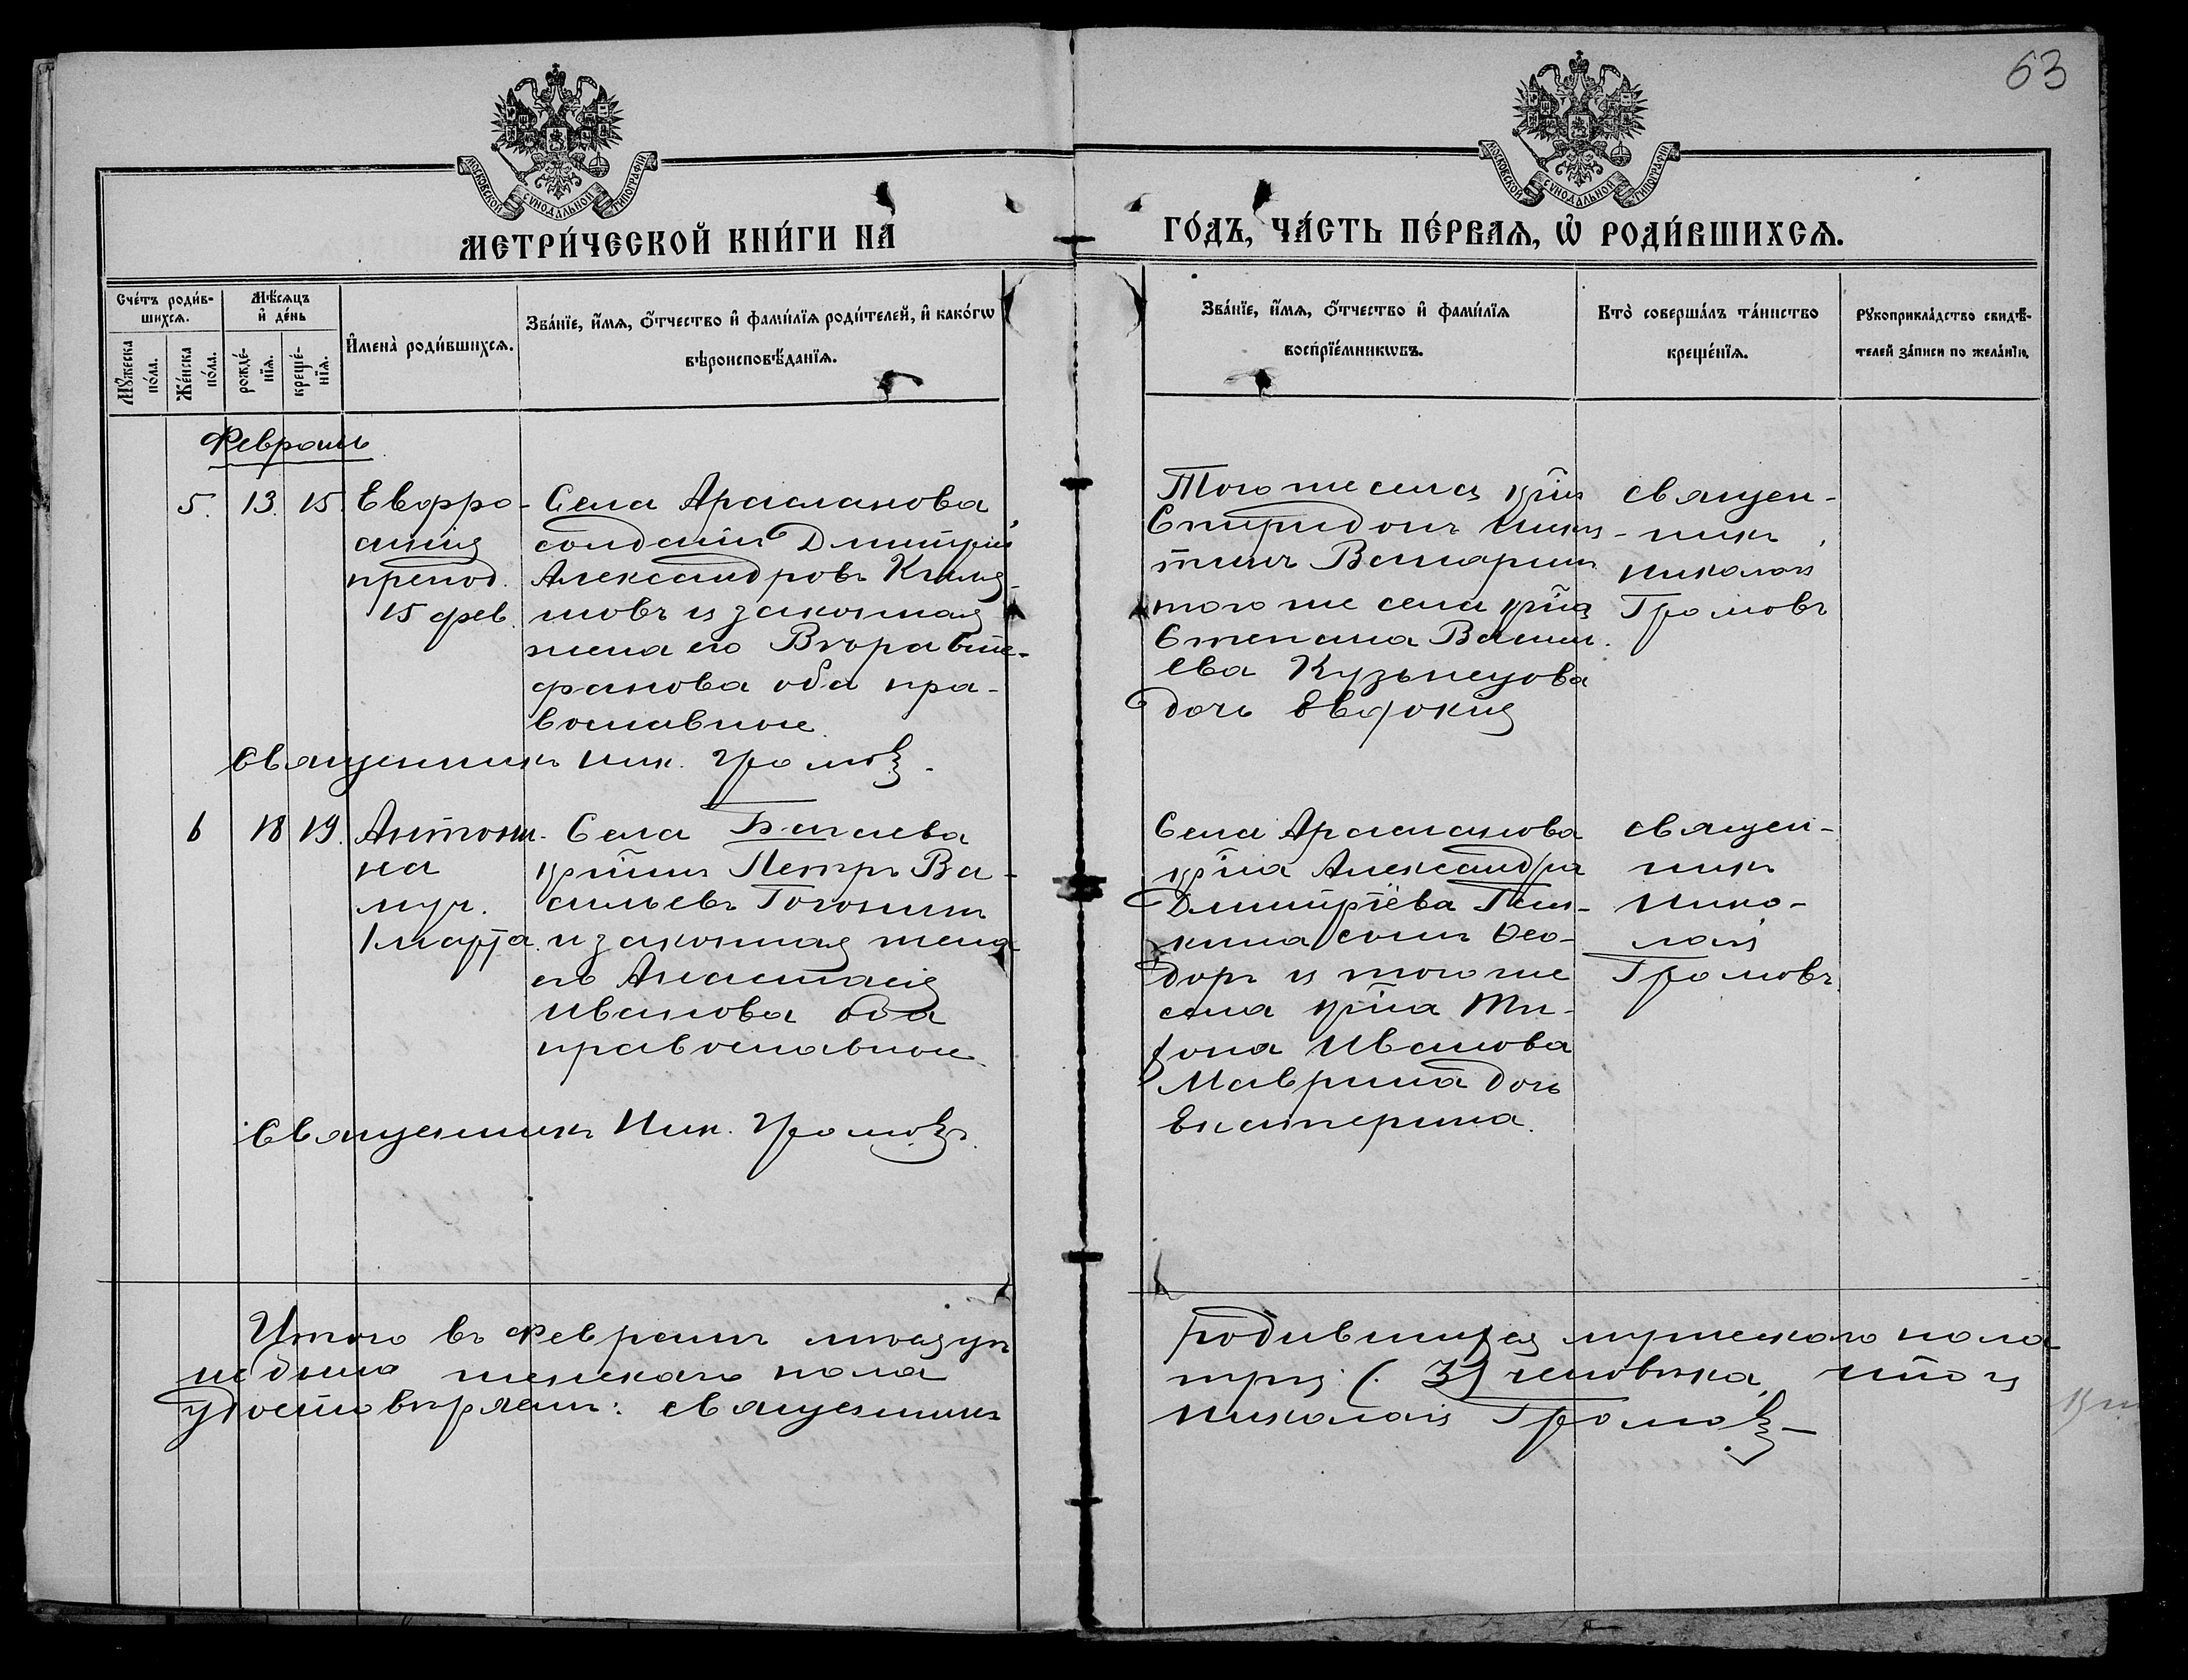 63
МОСКОВСКОЙ СѴНОДАЛЬНОЙ ТИПОГРАФІИ
МОСКОВСКОЙ СѴНОДАЛЬНОЙ ТИПОГРАФІИ
МЕТРИ́ЧЕСКОЙ КНИ́ГИ НА̀
ГО́ДЪ, ЧА́СТЬ ПЕ́РВАѦ, Ѡ҆ РОДИ́ВШИХСѦ.
Сче́тъ роди́в-
шихсѧ.
Мꙋ́жеска
по́ла.
Же́нска
по́ла.
Мѣ́сѧцъ
и҆ де́нь
рожде́-
нїѧ.
креще́-
нїѧ.
И҆мена̀ роди́вшихсѧ.
Зва́нїе, и҆́мѧ, ѻ҆́тчество и҆ фами́лїѧ роди́телей, и҆ како́гѡ
вѣроисповѣ́данїѧ.
Зва́нїе, и҆́мѧ, ѻ҆́тчество и҆ фами́лїѧ
воспрїе́мникѡвъ.
Кто̀ соверша́лъ та́инство
креще́нїѧ.
Рꙋкоприкла́дство свидѣ́-
телей за́писи по жела́нїю.
Февраль
5. 13. 15.
Евфро-
синія
препод.
15 фев.
Села Арасланова
солдатъ Дмитрій
Александровъ Климо-
новъ и законная
жена его Вѣра Сте-
фанова оба пра-
вославные.
Того же села кр͠нъ
Спиридонъ Ники-
тинъ
того же села кр͠на
Степана Василь
ева Кузьнецова
дочь Евдокія
священ-
никъ
Николай
Громовъ
Священникъ Ник. Громовъ.
6 18 19.
Антони-
на
муч.
1 марта.
Села
кр͠нинъ Петръ Ва-
сильевъ
и законная жена
его Анастасія
Иванова оба
православные.
Села Арасланова
кр͠на Александра
Дмитріева
сынъ Ѳео-
доръ и того же
села кр͠на Ти-
хона Иванова
Маврина дочь
Екатерина.
священ-
никъ
Нико-
лай
Громовъ
Священникъ Ник. Громовъ.
Итого въ Февралѣ мѣсяцѣ
родившихся мужескаго пола
женскаго пола
три (3) человѣка, что и
удостовѣряемъ: священникъ
Николай Громовъ